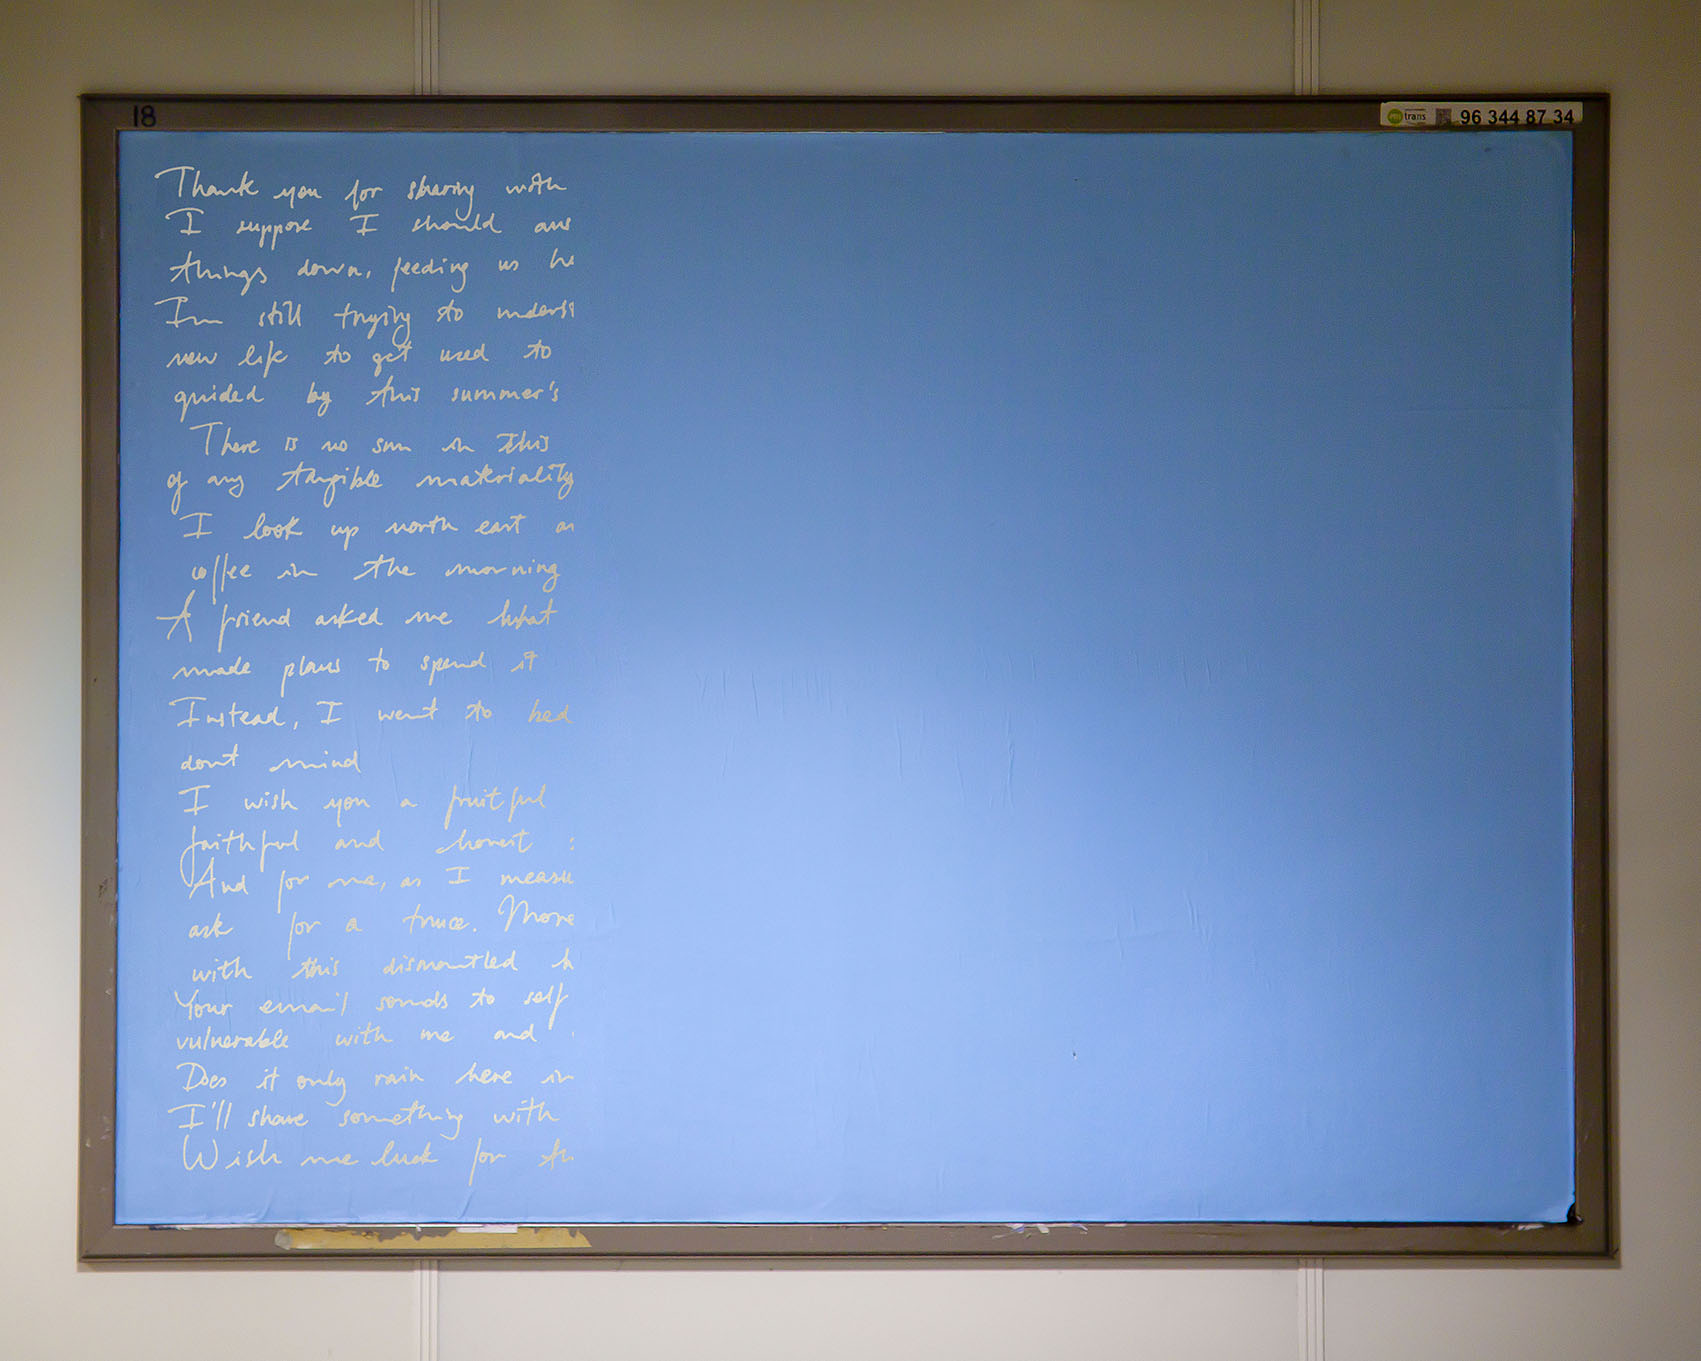 18
trans 96 344 87 34
Thank you for sharing with
I suppose I should ans
things down, feeding us he
Im still trying to underst
new life to get used to
guided by this summer's
There is no sun in this
of any tangible materiality
I look up north east an
coffee in the morning
A friend asked me what
made plans to spend it
Instead, I went to bed
dont mind
I wish you a fruitful
faithful and honest
And for me, as I measu
ask for a truce. More
with this dismantled
Your email sounds to self
vulnerable with me and
Does it only rain here in
I'll share something with
Wish me luck for th